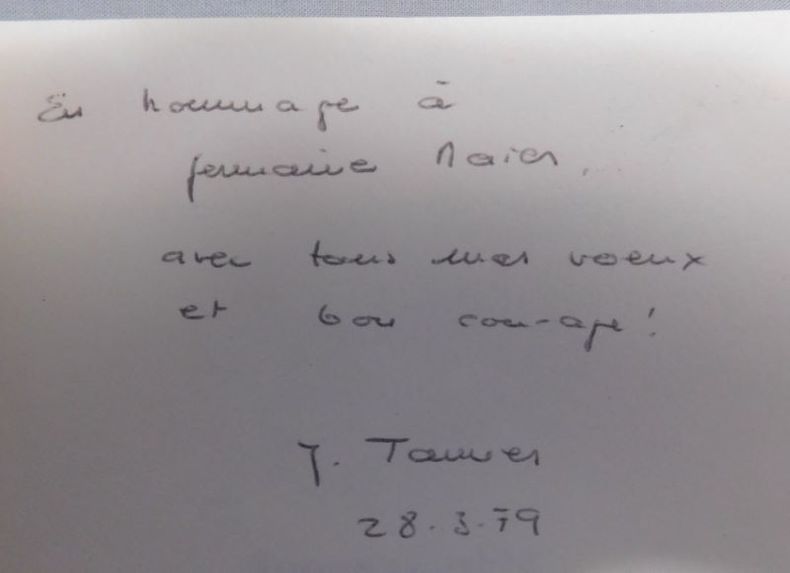 En hommage à
Germaine Maier,
avec tous mes voeux
et bon courage!
28.3.79